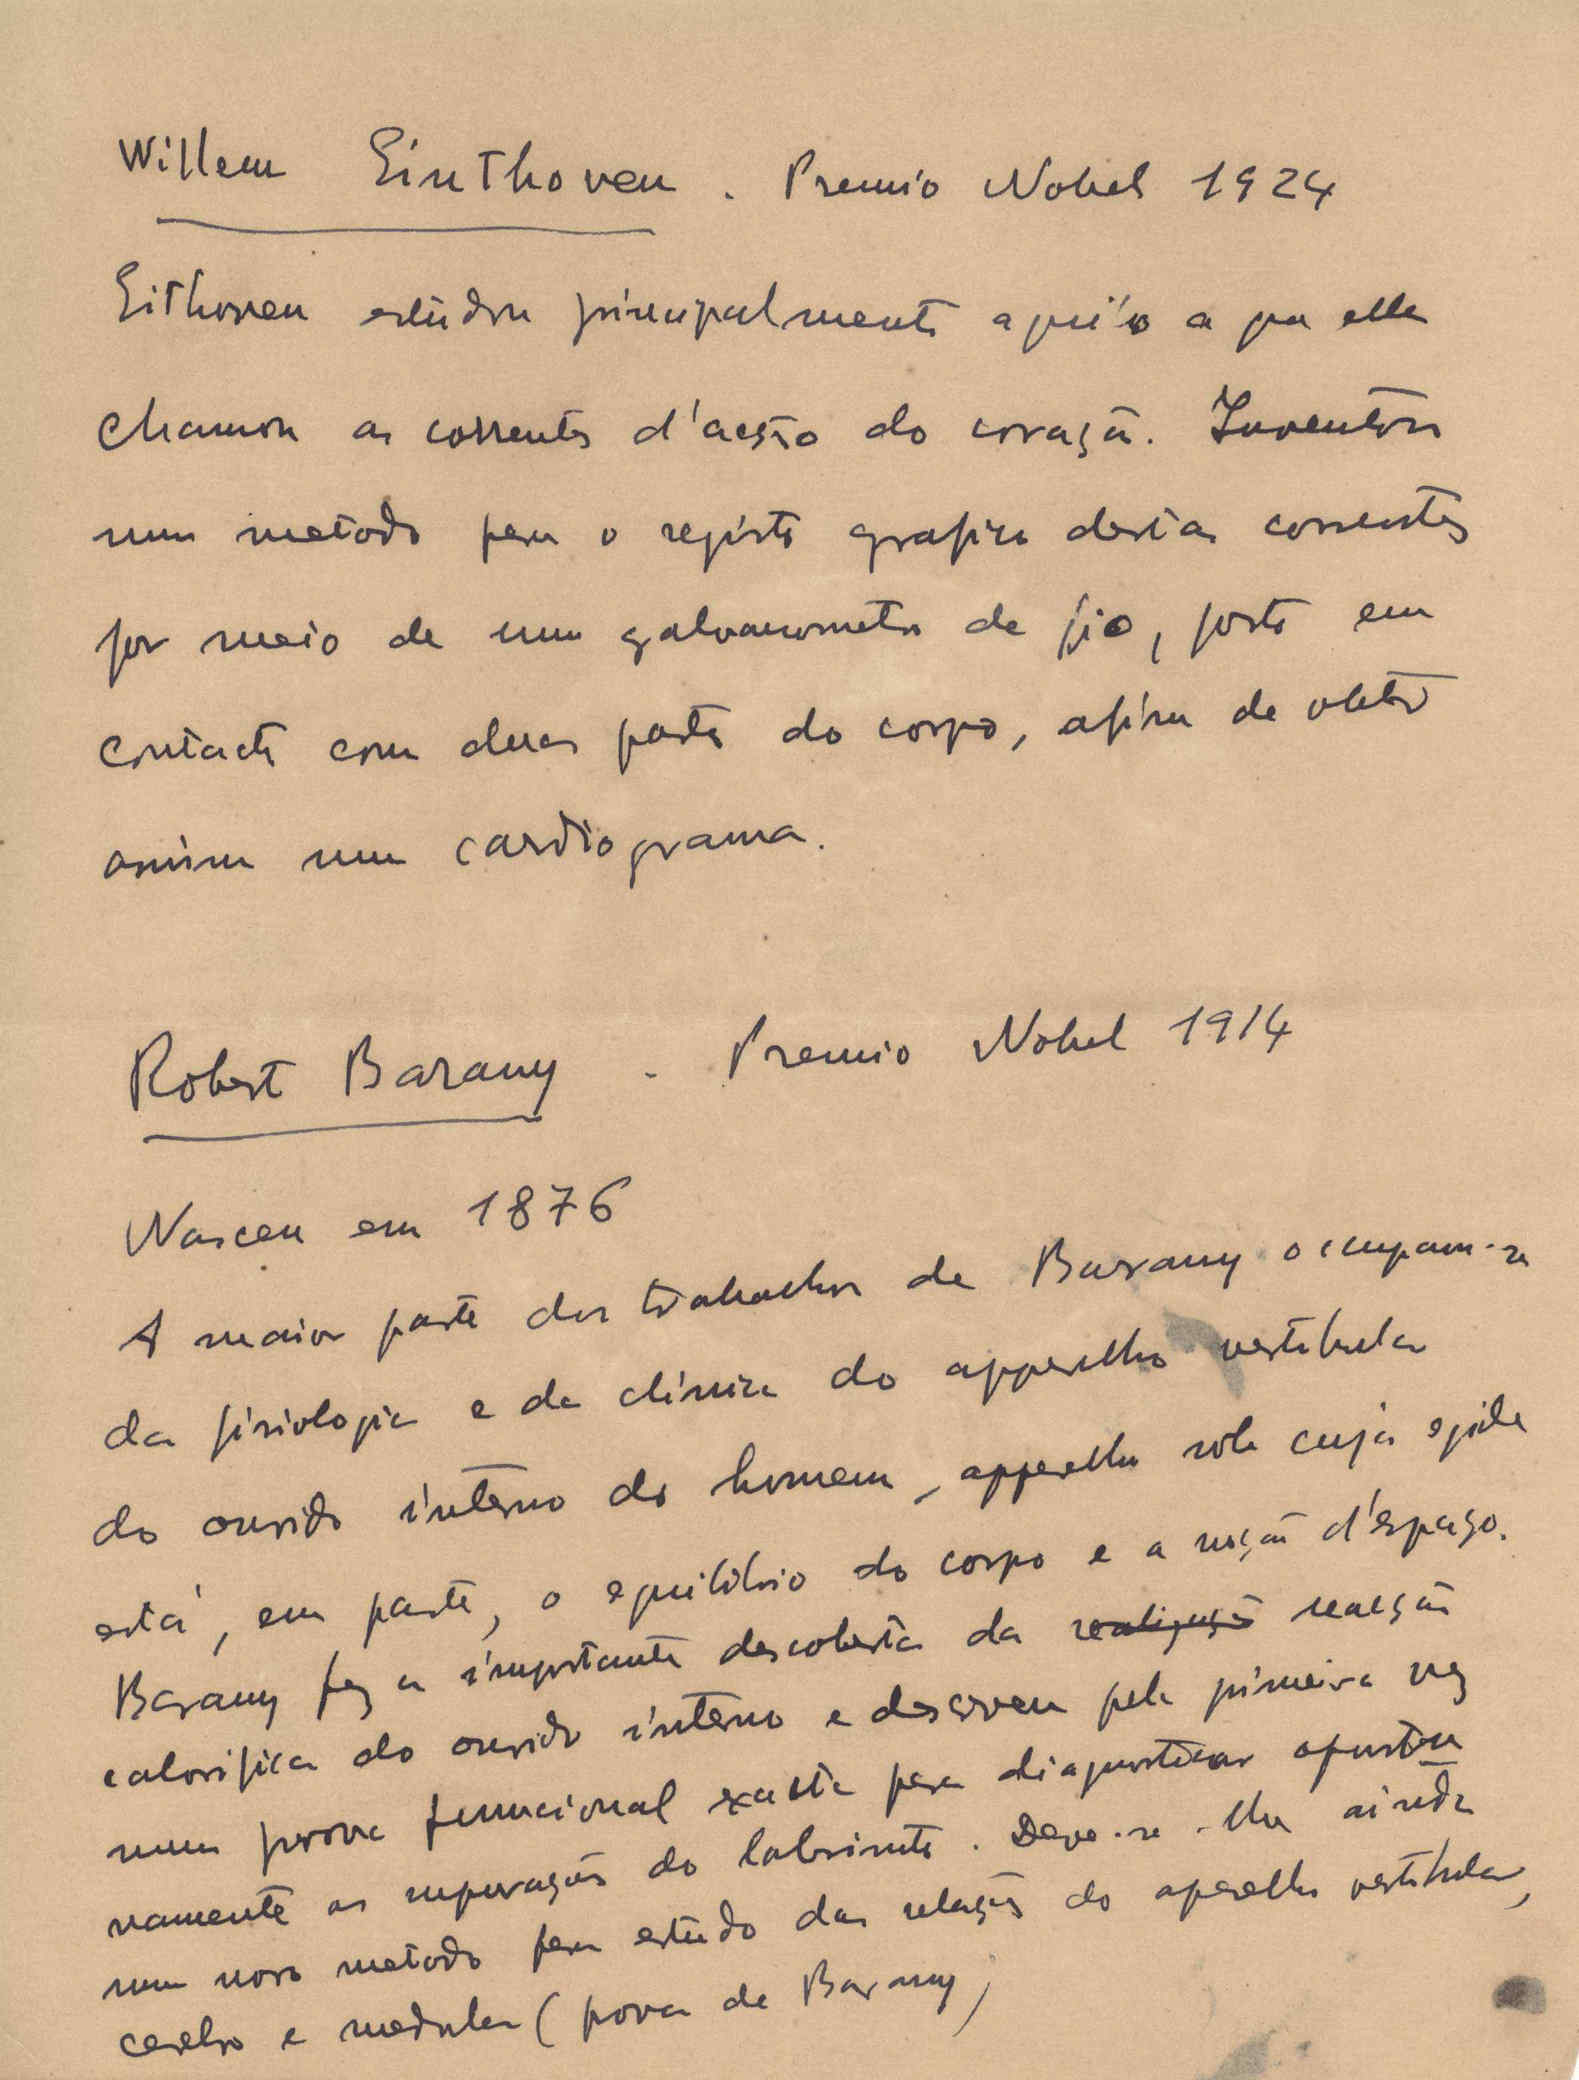 Willem Einthoven. Premio Nobel 1924
Eithoven estudou principalmente aquilo a que elle
chamou as correntes d'acção do coração. Inventou
um metodo para o registo grafico destas correntes
por meio de um galvanometro de fio, posto em
contacto com duas partes do corpo, afim de obter
assim um cardiograma.
Robert Barany. Premio Nobel 1914
Nasceu em 1876
A maior parte dos trabalhos de Barany occupam-se
da fisiologia e da clinica do apparelho vestibular
do ouvido interno do homem, apparelho sob cuja egide
está, em parte, o equilibrio do corpo e a noção d'espaço.
Barany fez a importante descoberta da realização reacção
calorifica do ouvido interno e descreveu pela primeira vez
uma prova funcional exacta para diagnosticar
vamente as supurações do labirinto. Deve-se-lhe ainda
um novo metodo para estudo das relações do aparelho vestibular,
cerebro e medula (prova de Barany)